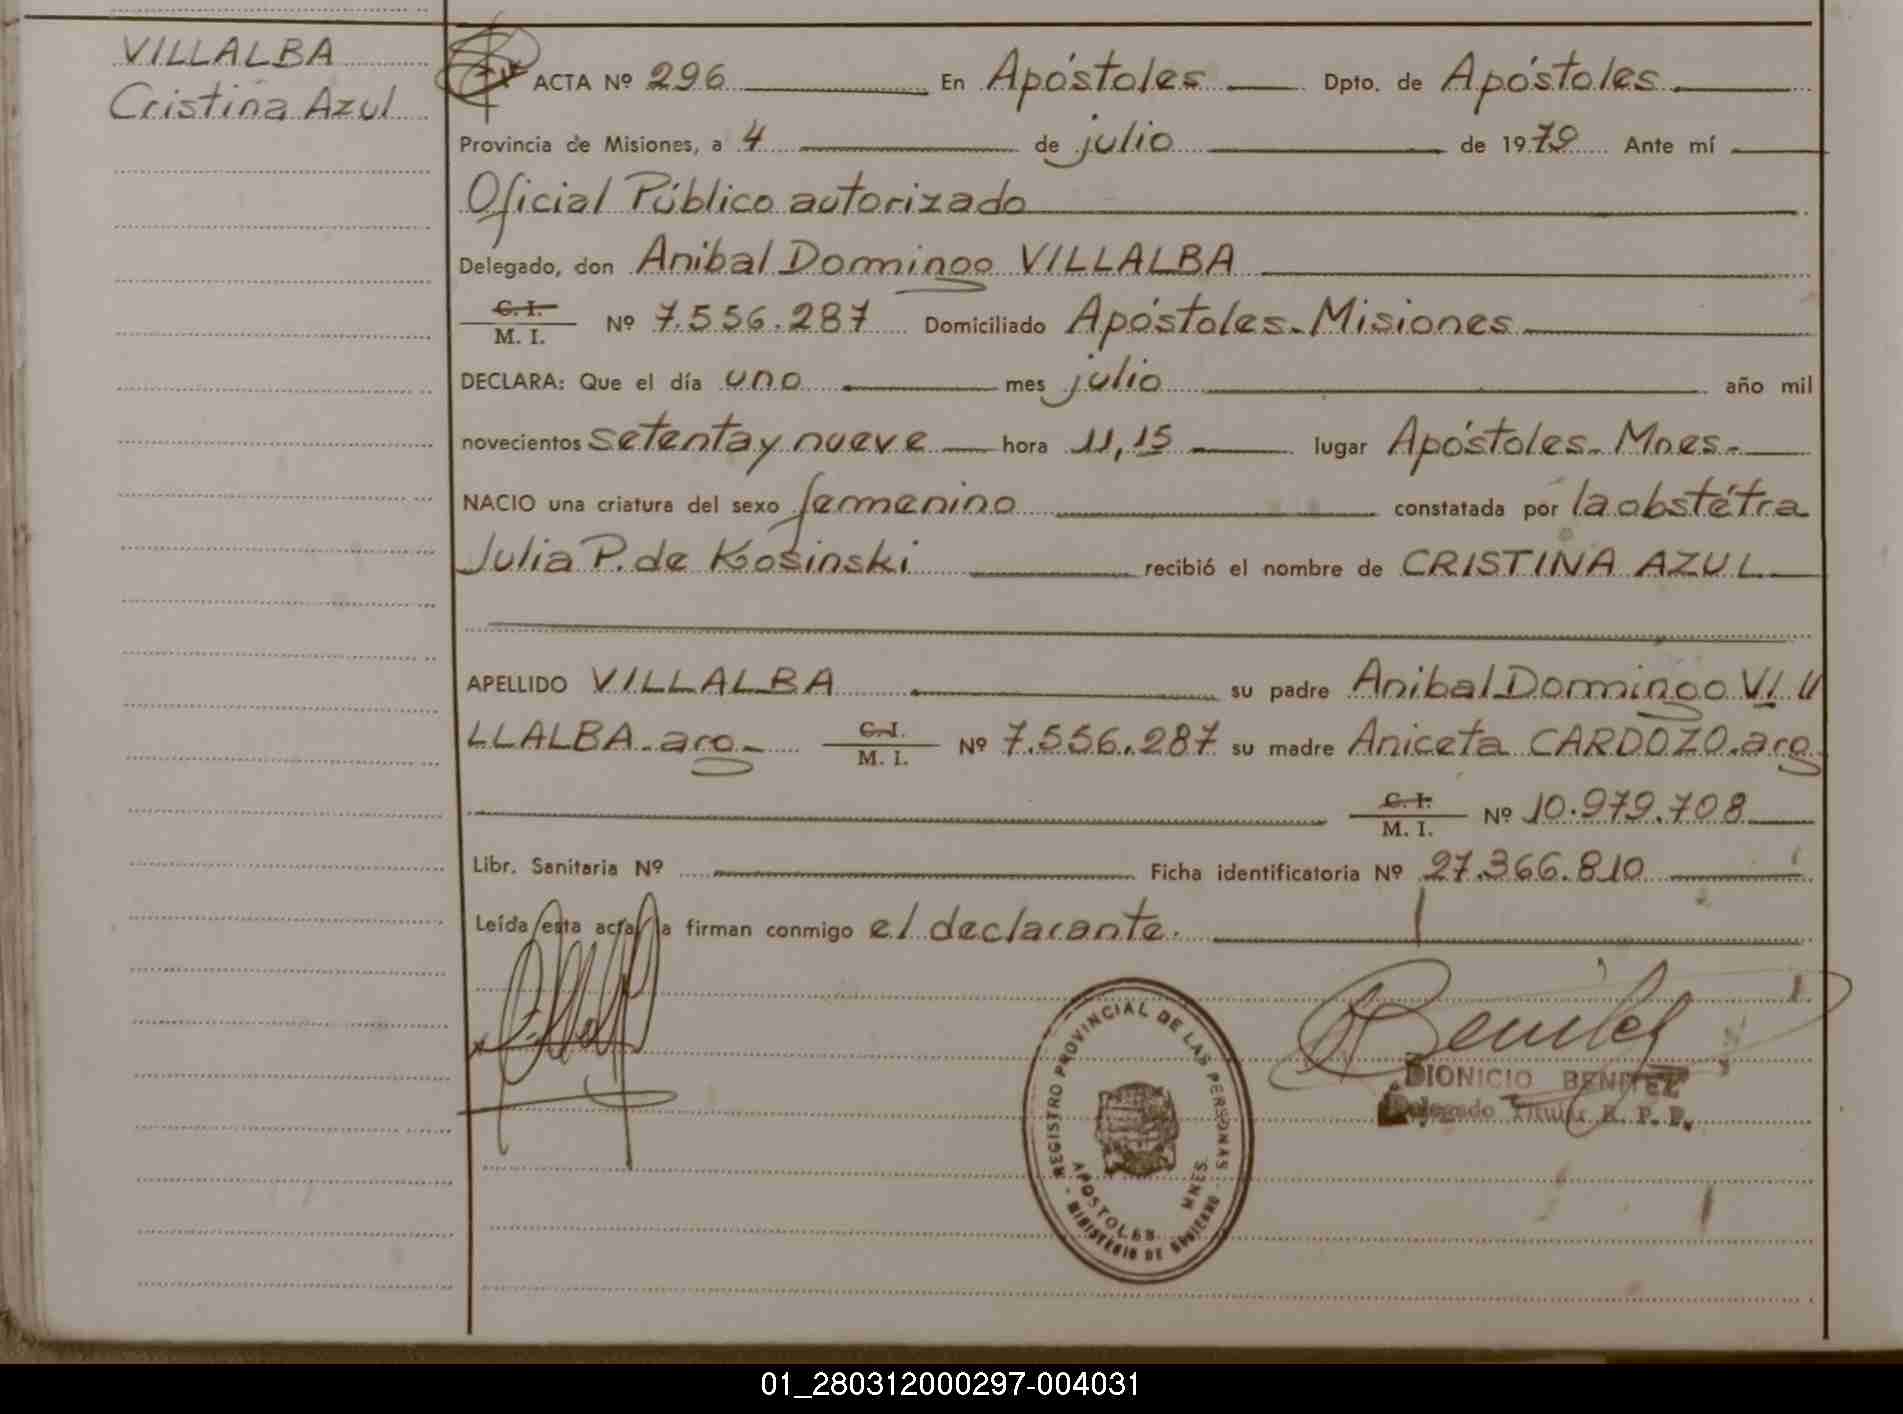 VILLALBA
Cristina Azul
ACTA Nº 296 En Apóstoles Dpto. de Apóstoles
Provincia de Misiones, a 4 de julio de 1979 Ante mí
Oficial Público autorizado
Delegado, don Anibal Domingo VILLALBA
C. I.
M. I. Nº 7.556.287 Domiciliado Apóstoles-Misiones
DECLARA: Que el día uno mes julio año mil
novecientos setenta y nueve hora 11,15 lugar Apóstoles-Mnes.-
NACIO una criatura del sexo femenino constatada por la obstétra
Julia P. de Kosinski recibió el nombre de CRISTINA AZUL
APELLIDO VILLALBA su padre Anibal Domingo VI
LLALBA-arg- C. I.
M. I. Nº 7.556.287 su madre Aniceta CARDOZO-arg
C. I.
M. I. Nº 10.979.708
Libr. Sanitaria Nº Ficha identificatoria Nº 27.366.810
Leída esta acta la firman conmigo el declarante.
Benitez
REGISTRO PROVINCIAL DE LAS PERSONAS
APOSTOLES MNES.
- MINISTERIO DE GOBIERNO -
DIONICIO BENITEZ
Delegado Titular R. P. P.
01_280312000297-004031